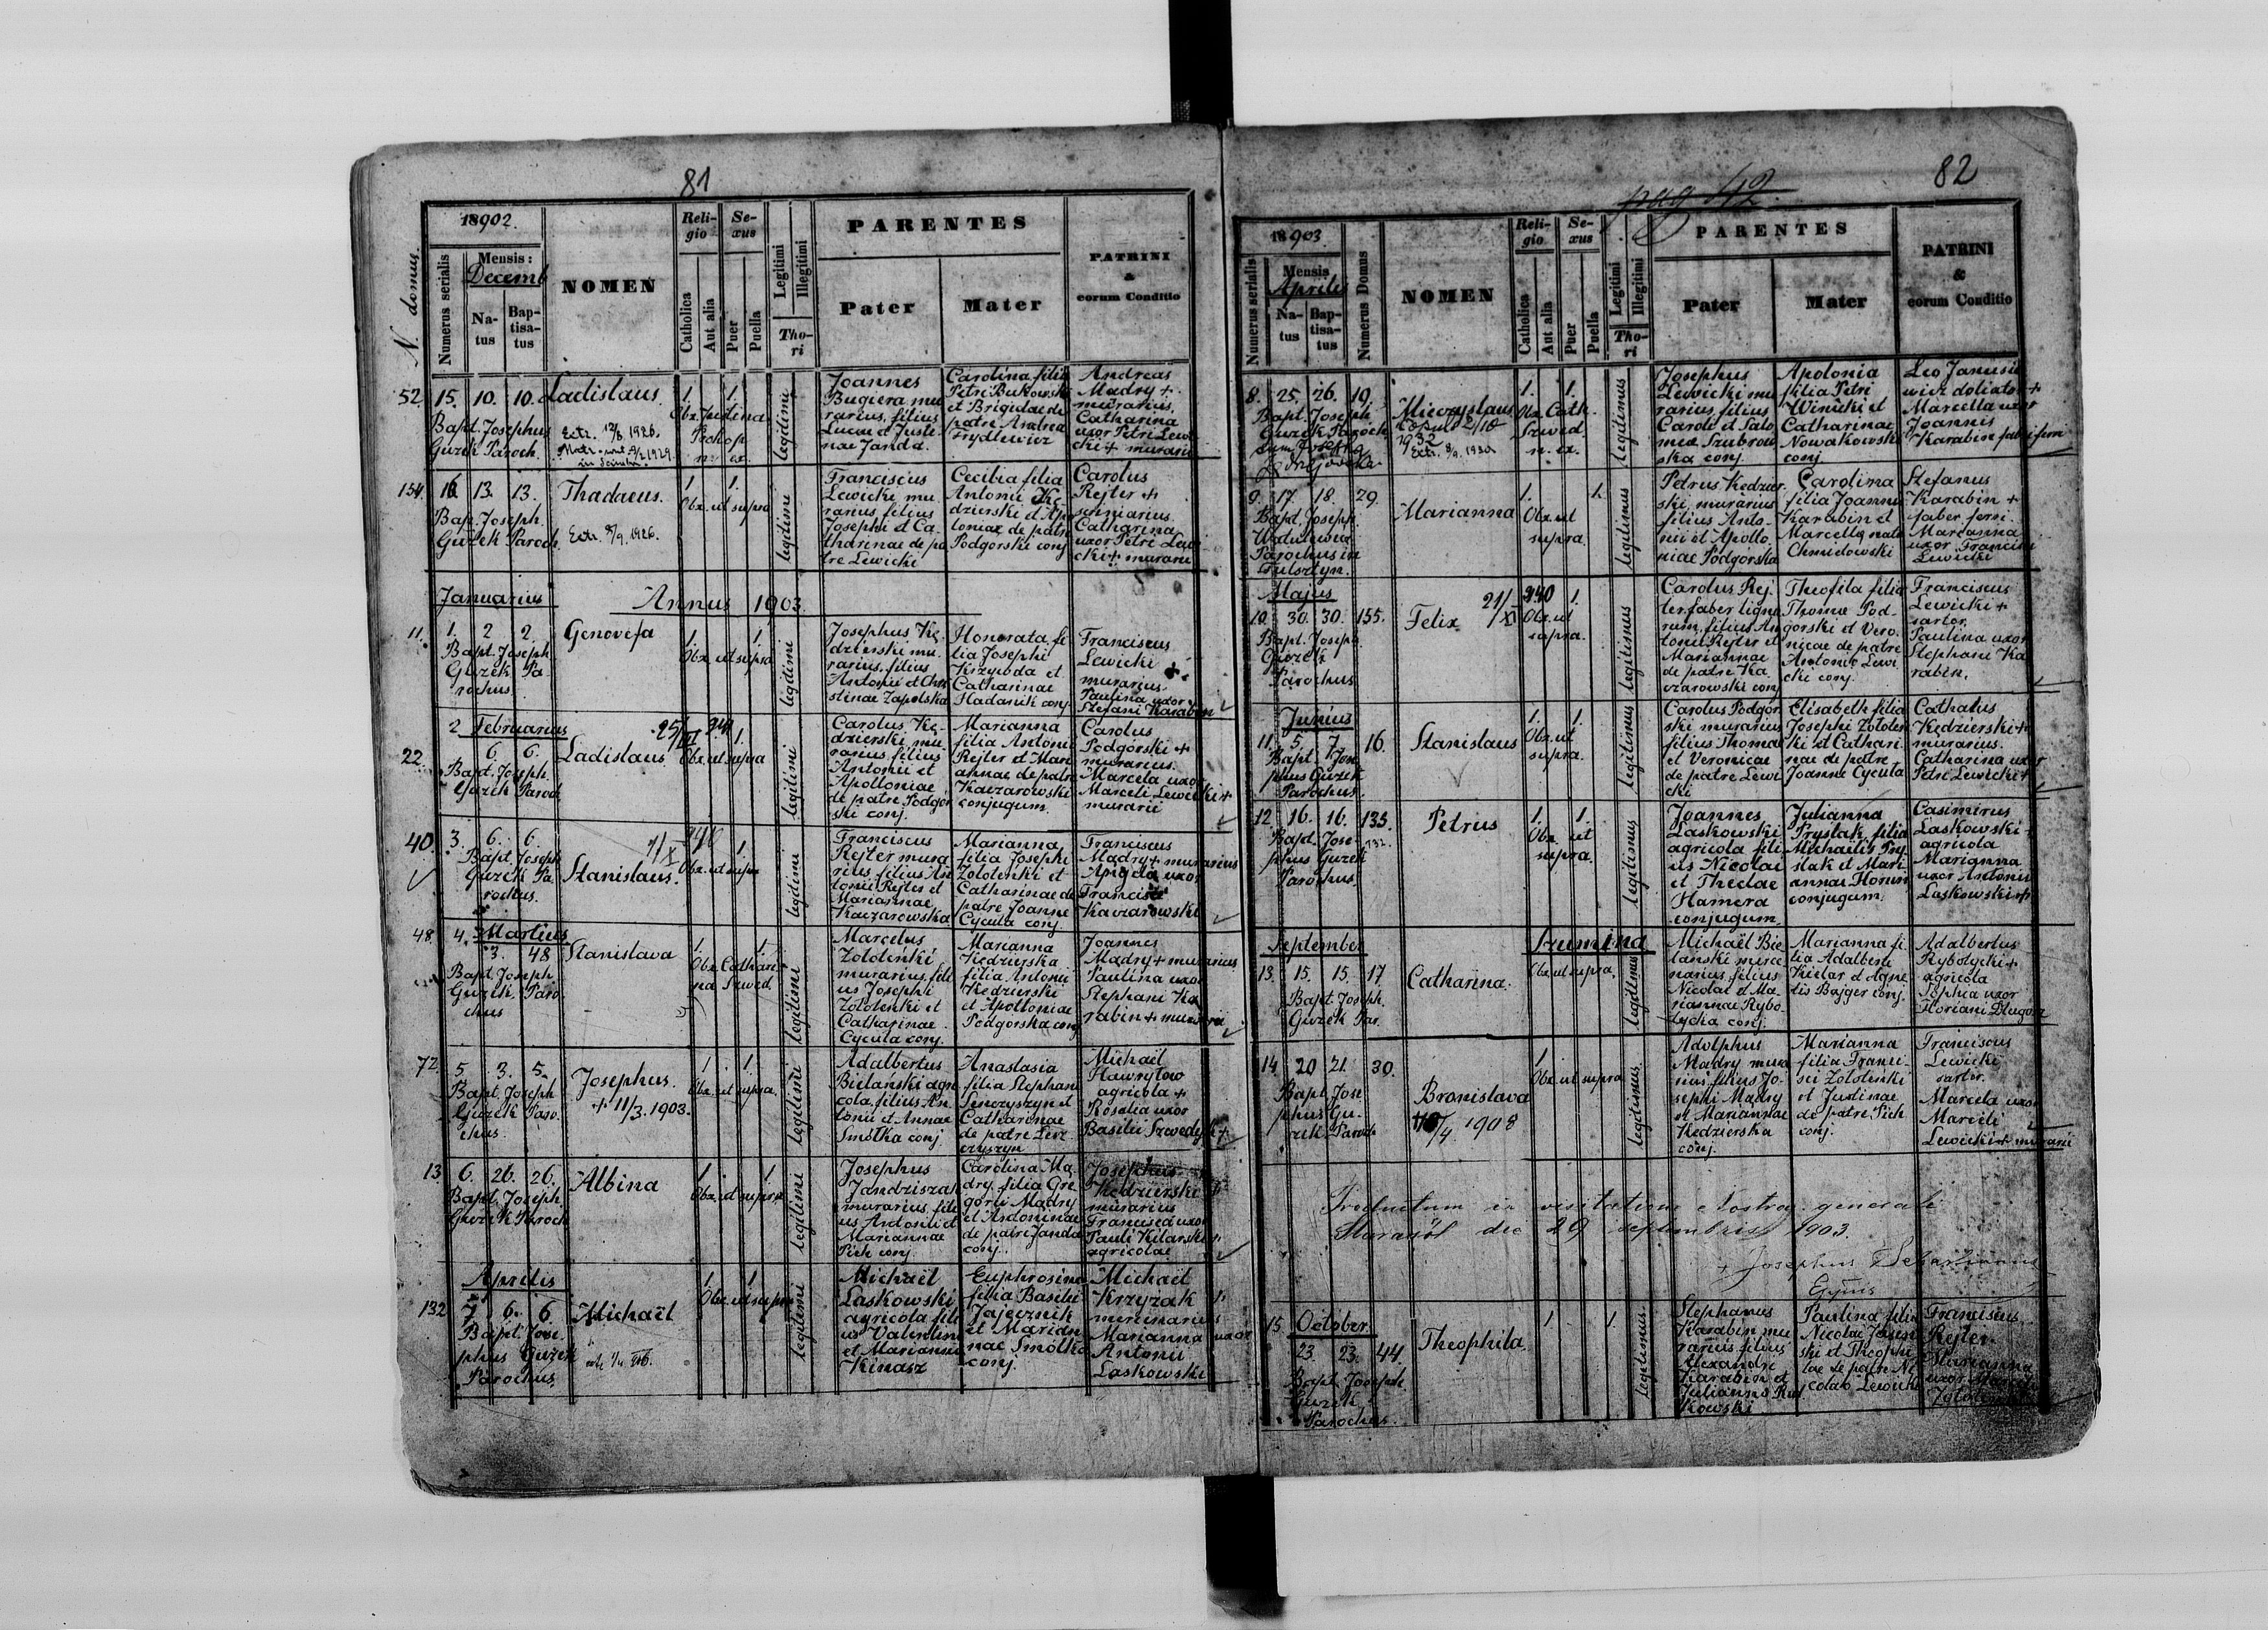 81
N. domus.
18902.
Numerus serialis
Mensis:
Decemb
Na-
tus
Bap-
tisa-
tus
NOMEN
Reli-
gio
Catholica
Aut alia
Se-
xus
Puer
Puella
Legitimi
Illegitimi
Tho-
ri
PARENTES
Pater
Mater
PATRINI
&
eorum Conditio
52. 15. 10. 10. Ladislaus. 1. 1.
Bapt. Josephus
Guzek Paroch.
Extr. 12/8. 1926.
Obx. Justina
Prokop
n. ex.
legitimi
Joannes
Bugiera mu
rarius, filius
Lucae et Justi-
nae Janda.
Carolina filia
Petri Bukowski
et Brigidae de
patre Andrea
Frydlewicz
Andreas
Mądry +
murarius.
Catharina
uxor Petri Lewi
cki + murarii
154. 16. 13. 13. Thadaeus. 1. 1.
Bap. Joseph.
Guzek Paroch.
Extr. 9/9. 1926.
Obx. ut supra
legitimi
Franciscus
Lewicki mu
rarius, filius
Josephi et Ca
tharinae de pa
tre Lewicki
Cecilia filia
Antonii Kę
dzierski et Apo
loniae de patre
Podgorski conj
Carolus
Rejter +
scriniarius.
Catharina
uxor Petri Lewi
cki + murarii
Januarius
Annus 1903.
11. 1. 2 2. Genovefa 1. 1
Bapt. Joseph
Guzek Pa-
rochus.
Obx. ut supra
legitimi
Josephus Kę-
dzierski mu-
rarius, filius
Antonii et Chri
stinae Zapolska
Honorata fi
lia Josephi
Krzywda et
Catharinae
Hadanik conj
Franciscus
Lewicki +
murarius.
Paulina uxor
Stefani Karabin
2 Februarius
22. 6. 6. Ladislaus 1.
Bapt. Joseph.
Guzek Paroch
Obx. ut supra
legitimi
Carolus Kę-
dzierski mu-
rarius filius
Antonii et
Apolloniae
de patre Podgor
ski conj.
Marianna
filia Antoni
Rejter et Mari
annae de patre
Kaczarowski
conjugum.
Carolus
Podgorski +
murarius.
Marcela uxor
Marceli Lewicki +
murarii
40. 3. 6. 6. Stanislaus. 1.
Bapt. Joseph
Guzek Pa-
rochus.
Obx. ut supra
legitimi
Franciscus
Rejter mura
rius filius An
tonii Rejter et
Mariannae
Kaczarowska
Marianna
filia Josephi
Zołoteńki et
Catharinae de
patre Joanne
Cycula conj.
Franciscus
Mądry + murarius
uxor
Francisci
Kaczarowski
48. 4. Martius
3. 48 Stanislava 1. 1
Bapt. Joseph
Guzek. Paro-
chus
Obx. Cathari-
na Szwed
legitimi
Marcelus
Zołoteńki
murarius, fili
us Josephi
Zołoteńki et
Catharinae
Cycula conj.
Marianna
Kędzierska
filia Antonii
Kędzierski
et Apolloniae
Podgorska conj
Joannes
Mądry + murarius
Paulina uxor
Stephani Ka
rabin + murarii
72. 5 3. 5. Josephus. 1. 1.
Bapt. Joseph
Guzek Paro-
chus
+ 11/3. 1903.
Obx. ut supra.
legitimi
Adalbertus
Bielański agri
cola, filius An
tonii et Annae
Smołka conj
Anastasia
filia Stephani
Senczyszyn et
Catharinae
de patre
Michaël
Hawryłow
agricola +
Rosalia uxor
Basilii
13. 6. 26. 26. Albina 1. 1
Bapt. Joseph
Guzek Paroch
Obx. ut supra
legitimi
Josephus
Jandziszak
murarius fili
us Antonii et
Mariannae
Pich conj
Carolina Mą
dry, filia Gre
gorii Mądry
et Antoninae
de patre Janda
conj.
Josephus
Kędzierski +
murarius
Francisca uxor
Pauli Kilarski +
agricolae
Aprilis
132. 7 6. 6. Michaël 1. 1
Bapt. Jose-
phus Guzek
Parochus.
Obx. ut supra
legitimi
Michaël
Laskowski
agricola fili
us Valentini
et Mariannae
Kinasz
Euphrosina
filia Basilii
Jajecznik
et Marian
nae Smołka
conj.
Michaël
Krzyżak +
mercenarius
Marianna uxor
Antonii
Laskowski
pag 42.
82
18903
Numerus serialis
Mensis
Aprilis
Na-
tus
Bap-
tisa-
tus
Numerus Domus
NOMEN
Reli-
gio
Catholica
Aut alia
Se-
xus
Puer
Puella
Legitimi
Illegitimi
Tho-
ri
PARENTES
Pater
Mater
PATRINI
&
eorum Conditio
8. 25. 26. 19. Mieczyslaus 1. 1.
Bapt. Joseph
Guzek Paroch
1932
Obx. Cath.
Szwed.
n. ex.
legitimus
Josephus
Lewicki mu
rarius, filius
Caroli et Salo
mea Szubrow
ska conj.
Apolonia
filia Petri
Winicki et
Catharinae
Nowakowski
conj.
Leo Janusie
wicz doliator +
Marcella uxor
Joannis
Karabin fabri ferri
9. 17. 18. 29. Marianna 1. 1.
Bapt. Joseph.
Parochus in
Fulsztyn.
Obx. ut
supra.
legitimus
Petrus Kędzier-
ski, murarius
filius Anto-
nii et Apollo-
niae Podgórska
Carolina
filia Joannis
Karabin et
Marcella nata
Chmidowski
Stefanus
Karabin +
faber ferri.
Marianna
uxor Francisci
Lewicki
Majus
10. 30. 30. 155. Felix 21/XI 940 1.
Bapt. Joseph
Guzek
Parochus
Obx. ut
supra.
legitimus
Carolus Rej-
ter, faber ligna
rum, filius An
tonii Rejter et
Mariannae
de patre Ka
czarowski conj
Theofila filia
Thomae Pod-
górski et Vero-
nicae de patre
Antonio Lewi
cki conj.
Franciscus
Lewicki +
sartor.
Paulina uxor
Stephani Ka
rabin.
Junius
11. 5. 7. 16. Stanislaus 1. 1.
Bapt. Jose
phus Guzek
Parochus.
Obx. ut
supra.
legitimus
Carolus Podgor
ski murarius
filius Thomae
et Veronicae
de patre Lewi
cki
Elisabeth filia
Josephi Zołoteń
ki et Cathari-
nae de patre
Joanne Cycula
Kędzierski +
murarius.
Catharina uxor
Petri Lewicki +
12. 16. 16. 135. Petrus 1. 1.
Bapt. Jose-
phus Guzek
Parochus.
132.
Obx. ut
supra.
legitimus
Joannes
Laskowski
agricola fili
us Nicolai
et Theclae
Hamera
conjugum.
Julianna
Prystak, filia
Michaelis Pry-
stak et Mari
annae
conjugum.
Casimirus
Laskowski +
agricola
Marianna
uxor Antonii
Laskowski +
September
Szumina
13. 15. 15. 17. Catharina.
Bapt. Joseph.
Guzek Par.
Obx. ut supra.
legitimus
Michaël Bie
lanski merce
narius, filius
Nicolai et Ma-
riannae Rybo-
tycka conj.
Marianna fi-
lia Adalberti
Kielar et Agne-
tis Bajger conj.
Adalbertus
Rybotycki +
agricola
Sophia uxor
Floriani Długosz
14. 20 21. 30. Bronislava 1
Bapt. Jose
phus Gu-
zek Paroch
/4 1908
Obx. ut supra
legitimus.
Adolphus
Mądry mura
rius filius Jo-
sephi Mądry
et Mariannae
Kędzierska
conj.
Marianna
filia Franci-
sci Zołoteńki
et Justinae
de patre Pich
conj.
Franciscus
Lewicki
sartor.
Marcela uxor
Marcili
Lewicki + murarii
Productum in visitatione Nostra generali
die 29 Septembris 1903.
+ Josephus Sebastianus
15. October.
23. 23. 44. Theophila 1. 1.
Bapt. Joseph.
Guzek
Parochus.
Legitimus.
Stephanus
Karabin mu
rarius, filius
Alexandri
Karabin et
Julianna Rut
kowski
Paulina filia
Nicolai
ski et Theophi
lae de patre Ni
colao Lewicki
Franciscus
Rejter.
Marianna
uxor